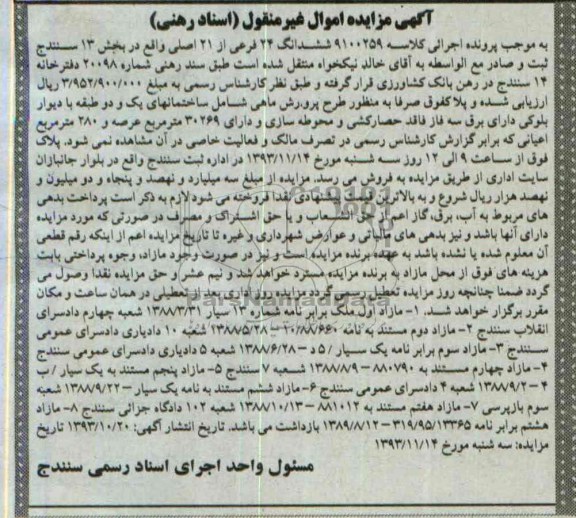 آگهی مزایده اموال غیرمنقول (اسناد رهنی)
به موجب پرونده اجرائی کلاسه ۹۱۰۰۲۵۹ ششدانگ ۲۴ فرعی از ۲۱ اصلی واقع در بخش ۱۳ سنندج
ثبت و صادر مع الواسطه به آقای خالد نیکخواه منتقل شده است طبق سند رهنی شماره ۲۰۰۹۸ دفترخانه
۱۴ سنندج در رهن بانک کشاورزی قرار گرفته و طبق نظر کارشناس رسمی به مبلغ ۳/۹۵۲/۹۰۰/۰۰۰ ریال
ارزیابی شده و پلاکفوق صرفا به منظور طرح پرورش ماهی شامل ساختمانهای یک و دو طبقه با دیوار
بلوکی دارای برق سه فاز فاقد حصارکشی و محوطه سازی و دارای ۳۰۲۶۹ مترمربع عرصه و ۲۸۰ مترمربع
اعیانی که برابر گزارش کارشناس رسمی در تصرف مالک و فعالیت خاصی در آن مشاهده نمی شود. پلاک
فوق از ساعت ۹ الی ۱۲ روز سه شنبه مورخ ۱۳۹۳/۱۱/۱۴ در اداره ثبت سنندج واقع در بلوار جانبازان
سایت اداری از طریق مزایده به فروش می رسد. مزایده از مبلغ سه میلیارد و نهصد و پنجاه و دو میلیون و
نهصد هزار ریال شروع و به بالاترین قیمت پیشنهادی نقدا فروخته می شود لازم به ذکر است پرداخت بدهی
های مربوط به آب، برق، گاز اعم از حق انشعاب و یا حق اشتراک و مصرف در صورتی که مورد مزایده
دارای آنها باشد و نیز بدهی های مالیاتی و عوارض شهرداری و غیره تا تاریخ مزایده اعم از اینکه رقم قطعی
آن معلوم شده یا نشده باشد به عهده برنده مزایده است و نیز در صورت وجود مازاد، وجوه پرداختی بابت
هزینه های فوق از محل مازاد به برنده مزایده مسترد خواهد شد و نیم عشر و حق مزایده نقدا وصول می
گردد ضمنا چنانچه روز مزایده تعطیل رسمی گردد مزایده روز اداری بعد از تعطیلی در همان ساعت و مکان
مقرر برگزار خواهد شد. ۱- مازاد اول ملک برابر نامه شماره ۱۳ سیار ۱۳۸۸/۳/۳۱ شعبه چهارم دادسرای
انقلاب سنندج ۲- مازاد دوم مستند به نامه ۲۰/۸۸/۶۶۰ – ۱۳۸۸/۵/۲۸ شعبه ۱۰ دادیاری دادسرای عمومی
سنندج ۳- مازاد سوم برابر نامه یک سیار / ۵ د – ۱۳۸۸/۶/۲۸ شعبه ۵ دادیاری دادسرای عمومی سنندج
۴- مازاد چهارم مستند به ۸۸۰۷۹۰ – ۱۳۸۸/۸/۹ شعبه ۷ سنندج ۵- مازاد پنجم مستند به یک سیار / ب
۴ – ۱۳۸۸/۹/۲ شعبه ۴ دادسرای عمومی سنندج ۶- مازاد ششم مستند به نامه یک سیار – ۱۳۸۸/۹/۲۲ شعبه
سوم بازپرسی ۷- مازاد هفتم مستند به ۸۸۱۰۱۲ – ۱۳۸۸/۱۰/۱۳ شعبه ۱۰۲ دادگاه جزائی سنندج ۸- مازاد
هشتم برابر نامه ۳۱۹/۹۵/۱۳۳۶۵ – ۱۳۸۹/۸/۱۲ بازداشت می باشد. تاریخ انتشار آگهی: ۱۳۹۳/۱۰/۲۰ تاریخ
مزایده: سه شنبه مورخ ۱۳۹۳/۱۱/۱۴
مسئول واحد اجرای اسناد رسمی سنندج